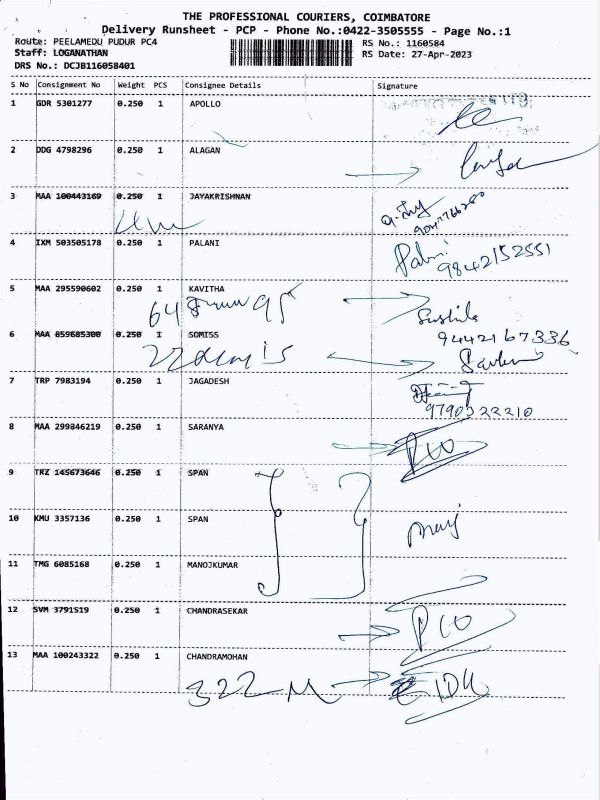 THE PROFESSIONAL COURIERS, COIMBATORE
Delivery Runsheet - PCP - Phone No.:0422-3505555 - Page No.:1
Route: PEELAMEDU PUDUR PC4 RS No.: 1160584
Staff: LOGANATHAN RS Date: 27-Apr-2023
DRS No.: DCJB116058401
S No Consignment No Weight PCS Consignee Details Signature
1 GDR 5301277 0.250 1 APOLLO
2 DDG 4798296 0.250 1 ALAGAN
3 MAA 100443169 0.250 1 JAYAKRISHNAN
4 IXM 503505178 0.250 1 PALANI
Palni
9842152551
5 MAA 295590602 0.250 1 KAVITHA
64 95
Sushila
9442167336
6 MAA 859685300 0.250 1 SOMISS
7 TRP 7983194 0.250 1 JAGADESH
9790322210
8 MAA 299846219 0.250 1 SARANYA
9 TRZ 145673646 0.250 1 SPAN
10 KMU 3357136 0.250 1 SPAN
11 TMG 6085168 0.250 1 MANOJKUMAR
12 SVM 3791519 0.250 1 CHANDRASEKAR
13 MAA 100243322 0.250 1 CHANDRAMOHAN
322